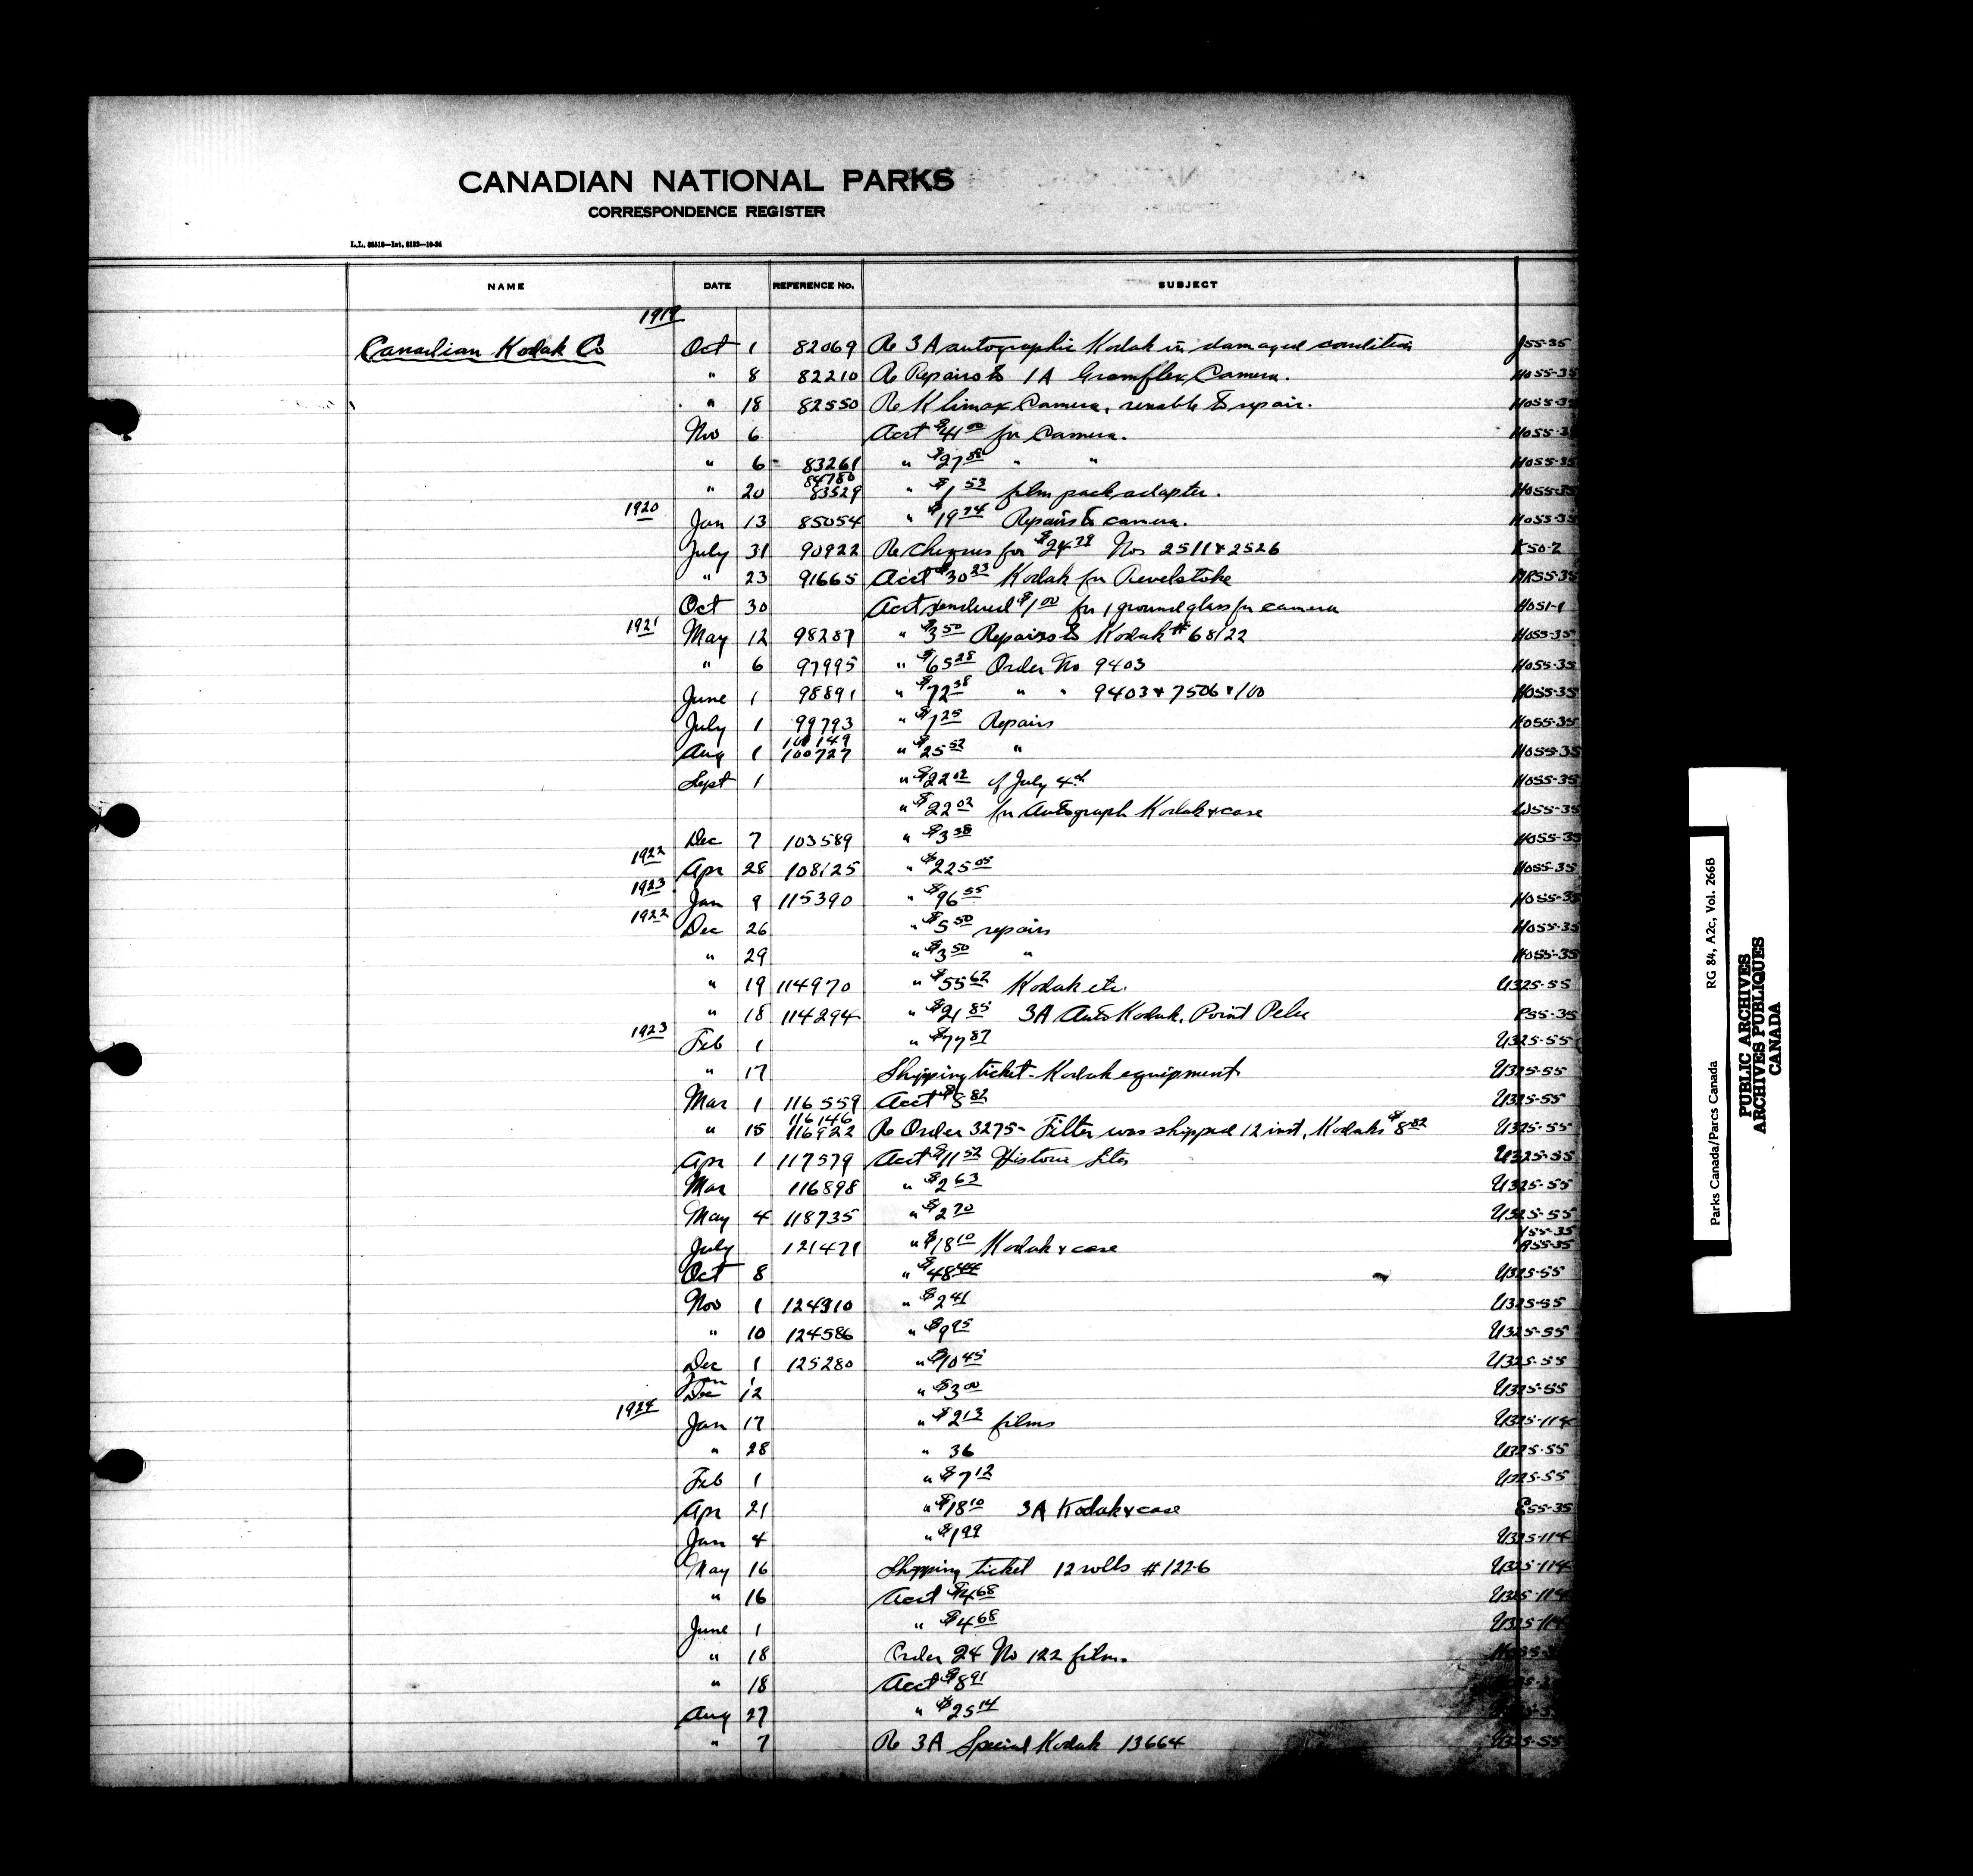 CANADIAN NATIONAL PARKS
CORRESPONDENCE REGISTER
L.L. 36518—Int. 8123—10-24
NAME DATE REFERENCE No. SUBJECT
1919
Canadian Kodak Co Oct 1 82069 Re 3A autographic Kodak in damaged condition J55-35
" 8 82210 Re Repairs to 1A Gramflex Camera. H055-35
" 18 82550 Re Klimax Camera, unable to repair. H055-35
Nov 6 Acct $41 00 for Camera. H055-35
" 6 - 83261 " $27 88 " " H055-35
84780
" 20 83529 " $1 53 film pack adapter. H055-35
1920
Jan 13 85054 " $19 74 Repairs to camera. H055-35
July 31 90922 Re cheques for $24 78 Nos 2511 & 2526 K50-2
" 23 91665 Acct $30 23 Kodak for Revelstoke MR55-35
Oct 30 Acct rendered $1 00 for 1 ground glass for camera H051-1
1921
May 12 98287 " $3 50 Repairs to Kodak # 68122 H055-35
" 6 97995 " $65 28 Order No 9403 H055-35
June 1 98891 " $72 58 " " 9403 & 7506 & 100 H055-35
July 1 99793 " $1 25 Repairs H055-35
100149
Aug 1 100727 " $25 52 " H055-35
Sept 1 " $22 02 of July 4th H055-35
" $22 02 for Autograph Kodak & case W55-35
Dec 7 103589 " $3 38 H055-35
1922
Apr 28 108125 " $225 05 H055-35
1923
Jan 9 115390 " $96 55 H055-35
1922
Dec 26 " $5 50 repairs H055-35
" 29 " $3 50 " H055-35
" 19 114970 " $55 62 Kodak etc. U325-55
" 18 114294 " $21 85 3A Auto Kodak, Point Pelee P55-35
1923
Feb 1 " $77 87 U325-55
" 17 Shipping ticket - Kodak equipment U325-55
Mar 1 116559 Acct $8 82 U325-55
116146
" 15 116922 Re Order 3275 - Filter was shipped 12 inst, Kodaks $8 82 U325-55
Apr 1 117579 Acct $11 52 Historic Sites U325-55
Mar 116898 " $2 63 U325-55
May 4 118735 " $2 70 U325-55
Y55-35
July 121471 " $18 10 Kodak & case A55-35
Oct 8 " $48 44 U325-55
Nov 1 124310 " $2 41 U325-55
" 10 124586 " $9 95 U325-55
Dec 1 125280 " $10 45 U325-55
Jan 1
Dec 12 " $3 00 U325-55
1924
Jan 17 " $2 13 films U325-114
" 28 " 36 U325-55
Feb 1 " $7 12 U325-55
Apr 21 " $18 10 3A Kodak & case E55-35
Jan 4 " $1 99 U325-114
May 16 Shipping ticket 12 rolls # 122-6 U325-114
" 16 Acct $4 68 U325-114
June 1 " $4 68 U325-114
" 18 Order 24 No 122 films
" 18 Acct $8 91
Aug 27 " $25 14
" 7 Re 3A Special Kodak 13664 U325-55
Parks Canada/Parcs Canada RG 84, A2c, Vol. 266B
PUBLIC ARCHIVES
ARCHIVES PUBLIQUES
CANADA